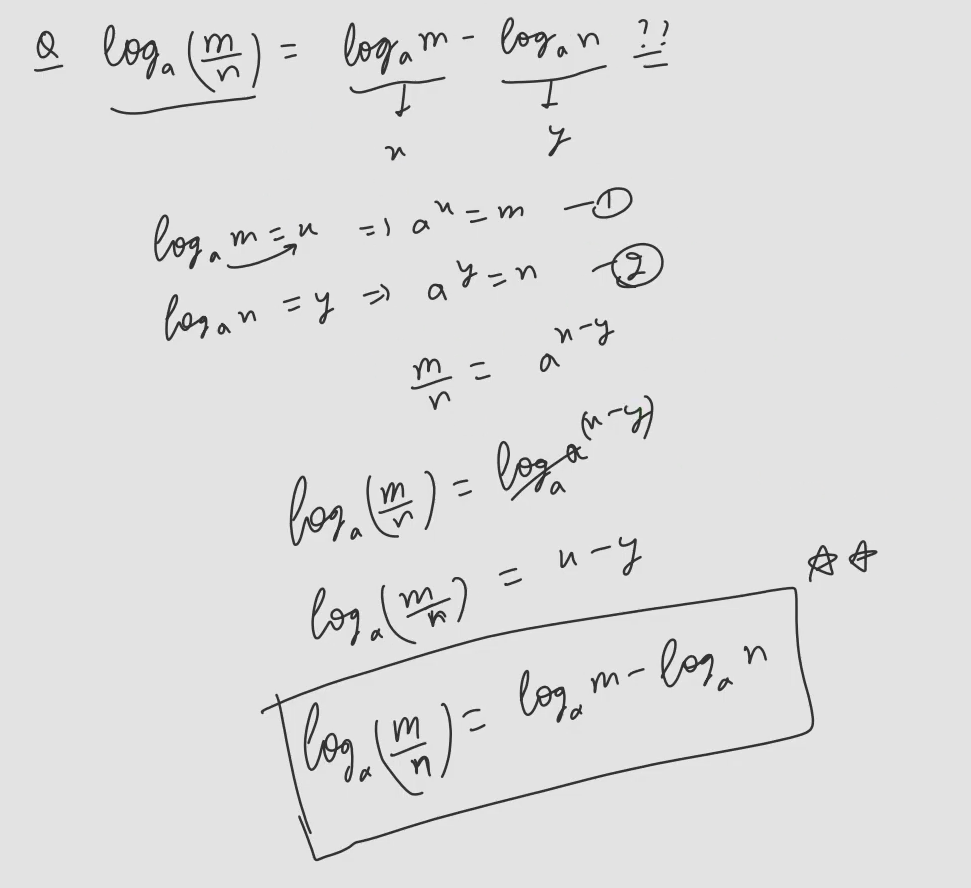 Q logₐ(m/n) = logₐm - logₐn ??
x y
logₐm = x => aˣ = m - ①
logₐn = y => aʸ = n - ②
m/n = aˣ⁻ʸ
logₐ(m/n) = logₐa⁽ˣ⁻ʸ⁾
logₐ(m/n) = x - y
☆☆
logₐ(m/n) = logₐm - logₐn